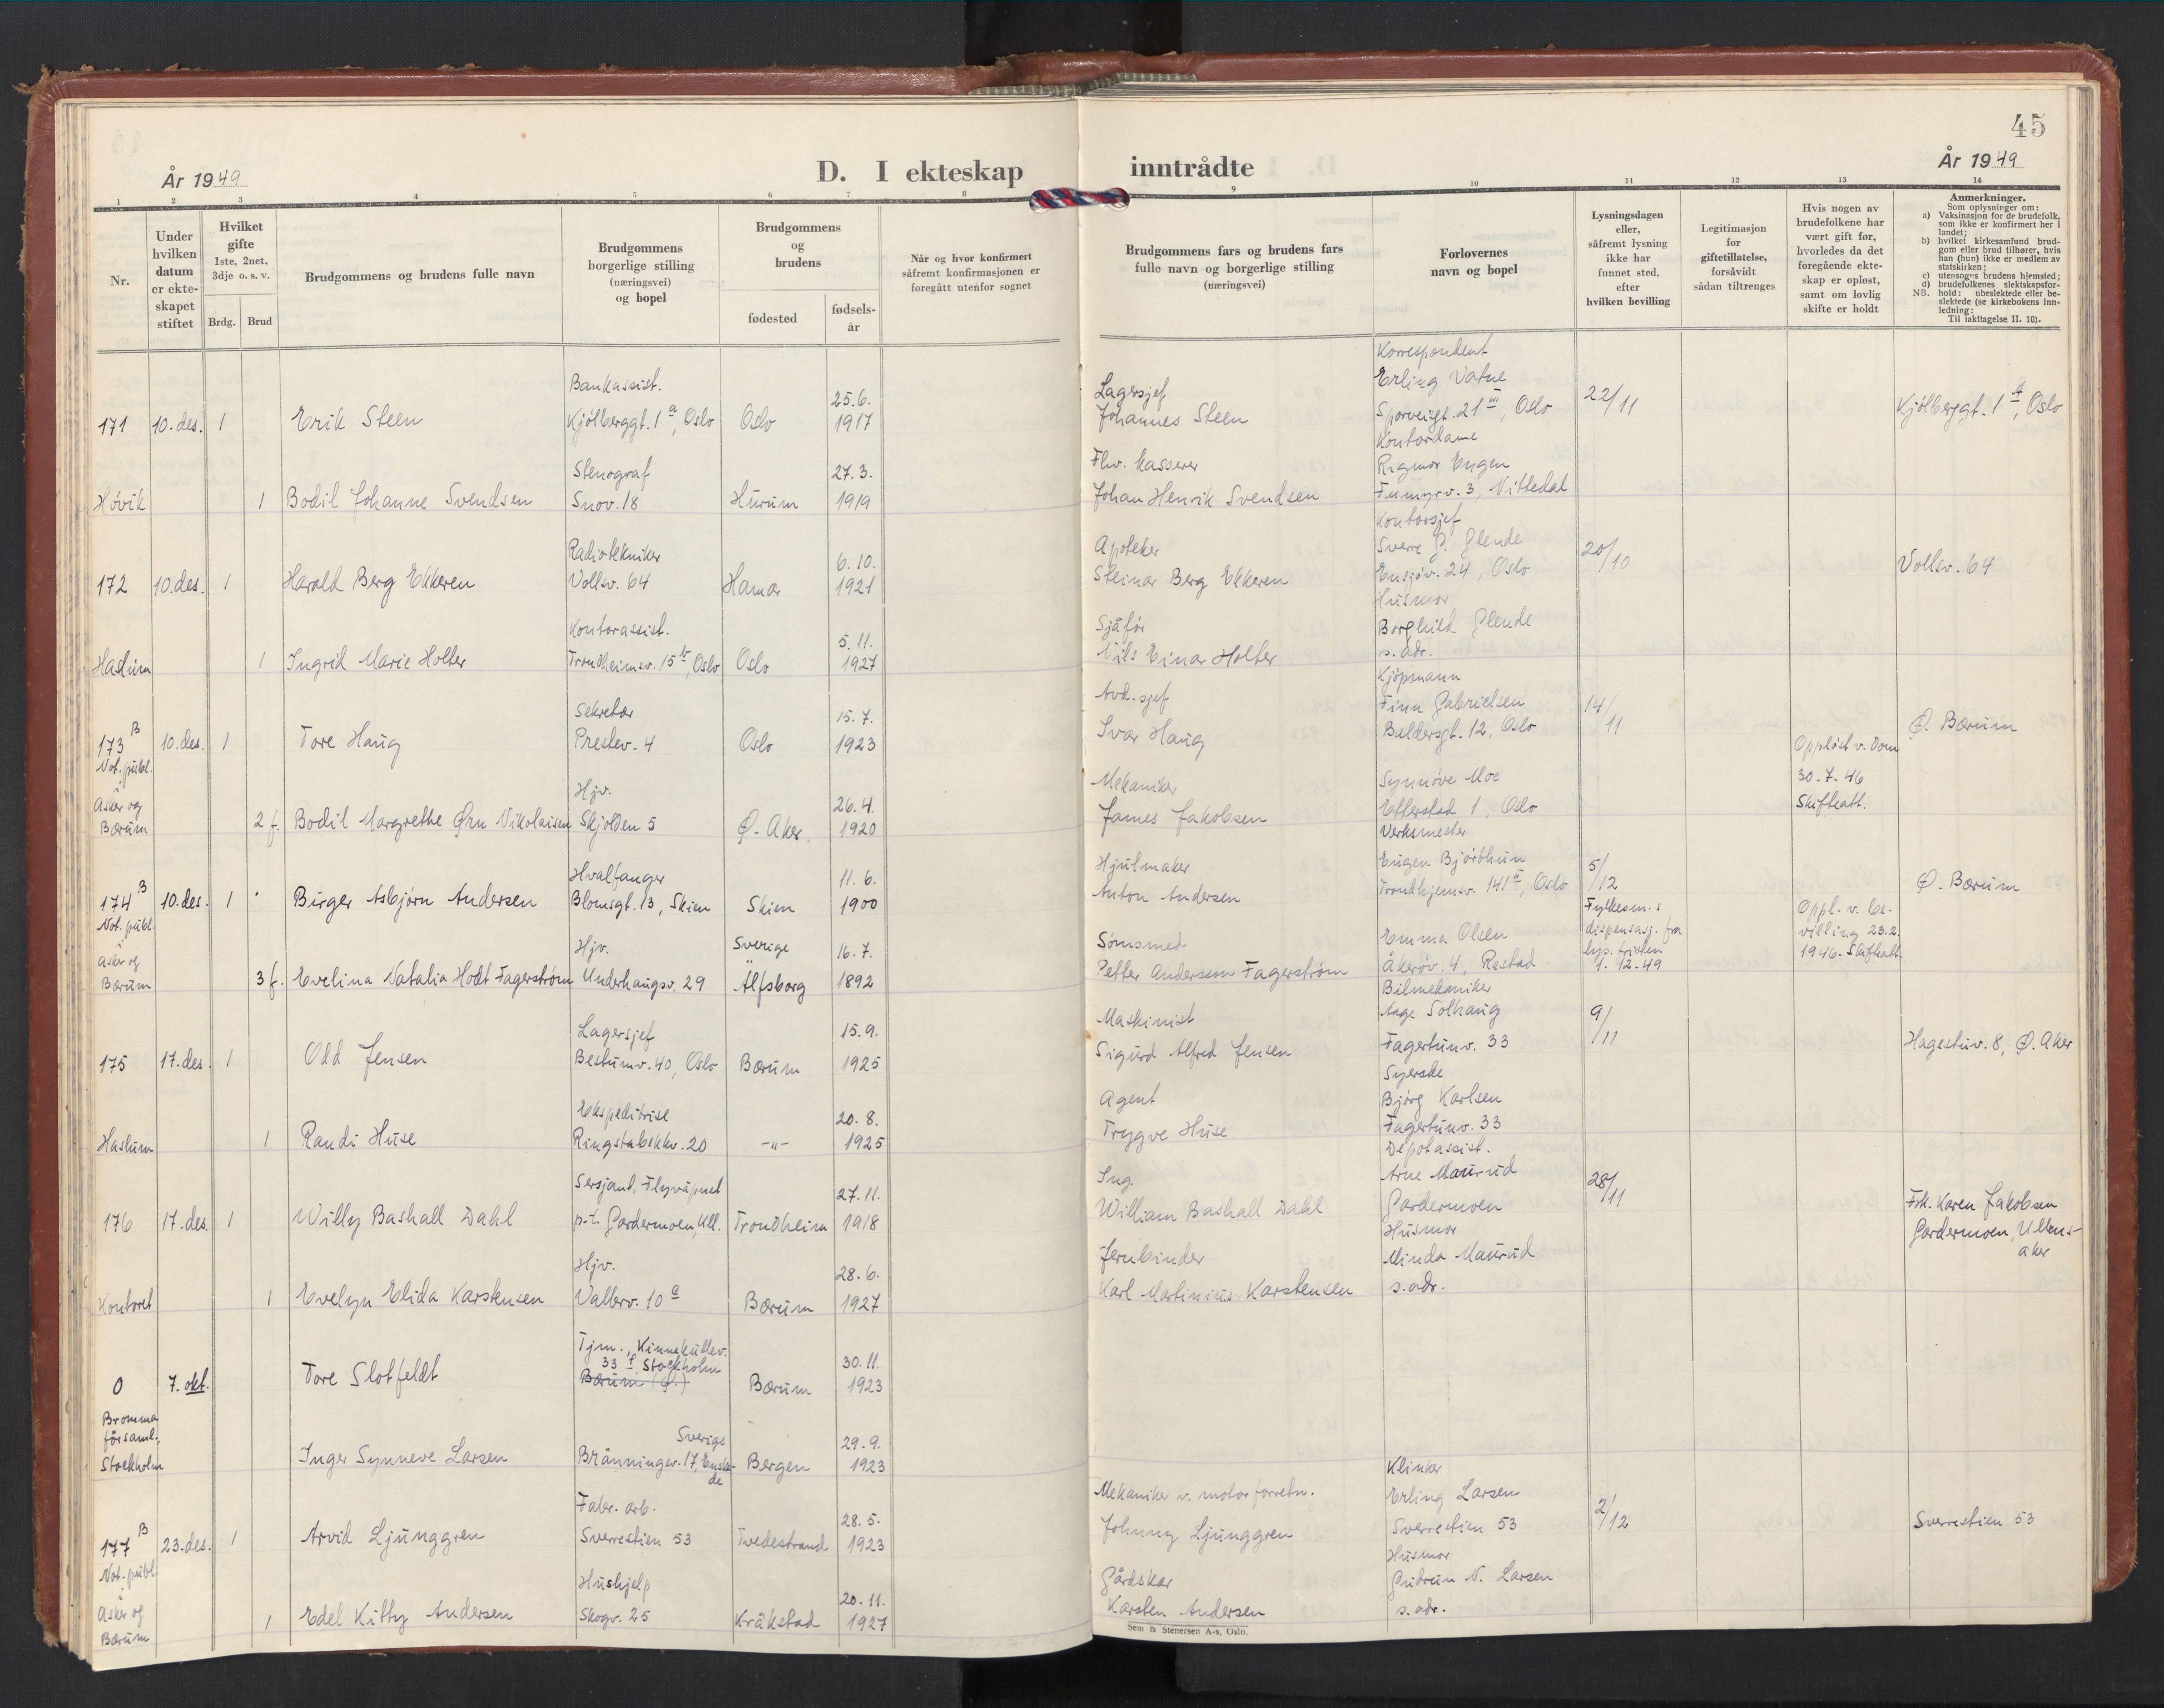 45
År 1949
D. I ekteskap inntrådte
År 1949
1 2 3 4 5 6 7 8 9 10 11 12 13 14
Nr.
Under hvilken datum er ekteskapet stiftet
Hvilket gifte 1ste, 2net, 3dje o. s. v.
Brdg. Brud
Brudgommens og brudens fulle navn
Brudgommens borgerlige stilling (næringsvei) og bopel
Brudgommens og brudens
fødested
fødsels-år
Når og hvor konfirmert såfremt konfirmasjonen er foregått utenfor sognet
Brudgommens fars og brudens fars fulle navn og borgerlige stilling (næringsvei)
Forlovernes navn og bopel
Lysningsdagen eller, såfremt lysning ikke har funnet sted, efter hvilken bevilling
Legitimasjon for giftetillatelse, forsåvidt sådan tiltrenges
Hvis nogen av brudefolkene har vært gift før, hvorledes da det foregående ekteskap er opløst, samt om lovlig skifte er holdt
Anmerkninger.
Som oplysninger om:
a) Vaksinasjon for de brudefolk, som ikke er konfirmert her i landet;
b) hvilket kirkesamfund brudgom eller brud tilhører, hvis han (hun) ikke er medlem av statskirken;
c) utensogns brudens hjemsted;
d) brudefolkenes slektskapsforhold: ubeslektede eller beslektede (se kirkebokens innledning:
NB.
Til iakttagelse II. 10).
171 10.des. 1 Erik Steen
Bankassist.
Kjølberggt. 1 a, Oslo
Oslo
25.6.
1917
Lagersjef
Johannes Steen
Korrespondent
Erling Vatne
Sporveisgt. 21 III, Oslo
22/11
Kjølberggt. 1 a, Oslo
Høvik 1 Bodil Johanne Svendsen
Stenograf
Snov. 18
Hurum
27.3.
1919
Fhv. kasserer
Johan Henrik Svendsen
Kontordame
Rigmor Engen
3, Nittedal
172 10.des. 1 Harald Berg Ekkeren
Radiotekniker
Vollsv. 64
Hamar
6.10.
1921
Apoteker
Steinar Berg Ekkeren
Kontorsjef
Sverre G. Glende
Ensjøv. 24, Oslo
20/10
Vollsv. 64
Haslum 1 Ingrid Marie Holter
Kontorassist.
Trondheimsv. 15 b, Oslo
Oslo
5.11.
1927
Sjåfør
Nils Einar Holter
Husmor
Borghild Glende
s. adr.
173 B 10.des. 1 Tore Haug
Not. publ. i
Sekretær
Prestev. 4
Oslo
15.7.
1923
Avd. sjef
Ivar Haug
Kjøpmann
Finn Gabrielsen
Baldersgt. 12, Oslo
14/11
Ø. Bærum
Asker og Bærum 2 f. Bodil Margrethe Ørn Nikolaisen
Hjv.
Skjolden 5
Ø. Aker
26.4.
1920
Mekaniker
James Jakobsen
Synnøve Moe
Etterstad 1, Oslo
Oppløst v. dom
30.7.46
Skifteatt.
174 B 10.des. 1 Birger Asbjørn Andersen
Not. publ. i
Hvalfanger
Blomsgt. 13, Skien
Skien
11.6.
1900
Hjulmaker
Anton Andersen
Verksmester
Trondhjemsv. 141 a, Oslo
5/12
Ø. Bærum
Asker og Bærum 3 f. Evelina Natalia Hodt Fagerstrøm
Hjv.
Underhaugsv. 29
Sverige
Älfsborg
16.7.
1892
Sömsmed
Petter Andersson Fagerström
Emma Olsen
Åkerøv. 4, Restad
Fylkesm.s
dispensasj. fra
lys. fristen
1.12.49
Oppl. v. be-
villing 23.2.
1946. Skifteatt.
175 17.des. 1 Odd Jensen
Lagersjef
Bestumv. 40, Oslo
Bærum
15.9.
1925
Maskinist
Sigurd Alfred Jensen
Bilmekaniker
Aage Solhaug
Fagertunv. 33
9/11
Hagastuv. 8, Ø. Aker
Haslum 1 Randi Huse
Ekspeditrise
Ringstabekkv. 20
-"-
20.8.
1925
Agent
Trygve Huse
Syerske
Bjørg Karlsen
Fagertunv. 33
176 17.des. 1 Willy Bashall Dahl
Sersjant, Flyvåpnet
p.t. Gardermoen, Ull.
Trondheim
27.11.
1918
Ing.
William Bashall Dahl
Depotassist.
Arne Maurud
Gardermoen
28/11
Frk. Karen Jakobsen
Gardermoen, Ullens-
aker
Kontoret 1 Evelyn Elida Karstensen
Hjv.
Vallerv. 10 a
Bærum
28.6.
1927
Jernbinder
Karl Martinius Karstensen
Husmor
Minda Maurud
s. adr.
0 7. okt. Tore Slotfeldt
Tjm., Kinnekullev.
33 I Stockholm
Bærum (Ø.)
Bærum
30.11.
1923
Bromma
församl.,
Stockholm
Inger Synneve Larsen
Sverige
Bränningev. 17, Enske-
de
Bergen
29.9.
1923
177 B 23.des. 1 Arvid Ljunggren
Not. publ. i
Fabr. arb.
Sverrestien 53
Tvedestrand
28.5.
1923
Mekaniker v. motorforretn.
Johnny Ljunggren
Klinker
Erling Larsen
Sverrestien 53
2/12
Sverrestien 53
Asker og Bærum 1 Edel Kitty Andersen
Hushjelp
Skogv. 25
Kråkstad
20.11.
1927
Gårdskar
Karsten Andersen
Husmor
Gudrun N. Larsen
s. adr.
Sem & Stenersen A-s, Oslo.